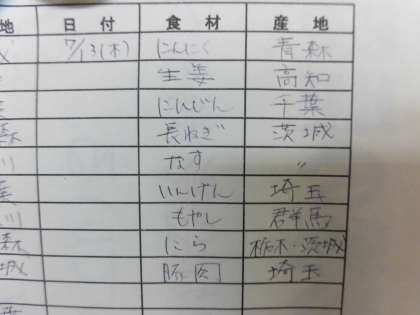 地 日付 食材 産地
7/13(木) にんにく 青森
生姜 高知
にんじん 千葉
長ねぎ 茨城
川 なす 〃
いんげん 埼玉
川 もやし 群馬
森 にら 栃木・茨城
城 豚肉 埼玉